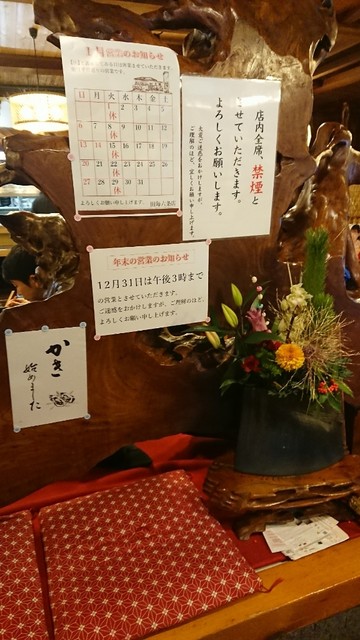 1月営業のお知らせ
日 月 火 水 木 金 土
1 2 3 4 5
休
6 7 8 9 10 11 12
休
13 14 15 16 17 18 19
休
20 21 22 23 24 25 26
休
27 28 29 30 31
休
よろしくお願い申し上げます。
店内全席、禁煙と
させていただきます。
よろしくお願いします。
大変ご迷惑をおかけしますが、
ご理解のほど、宜しくお願い申し上げます。
年末の営業のお知らせ
12月31日は午後3時まで
の営業とさせていただきます。
ご迷惑をおかけしますが、ご理解のほど、
よろしくお願い申し上げます。
かき
始めました